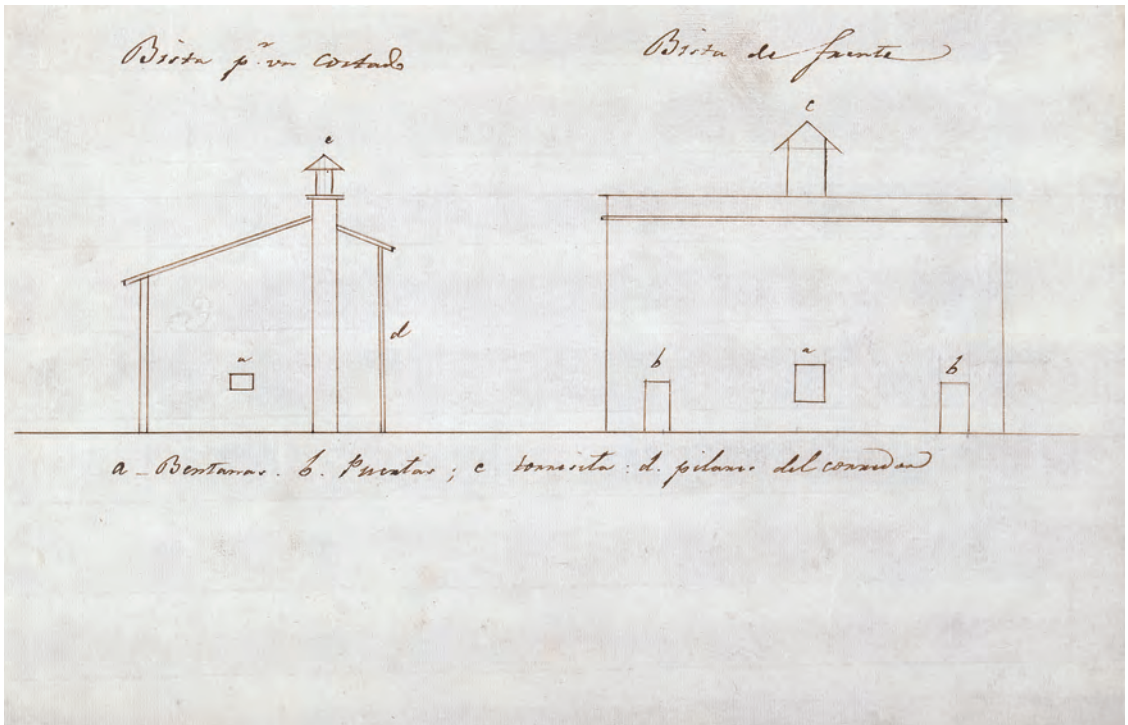 Bista p.r un costado
Bista de frente
c
c
d
a
b
a
b
a - Bentanas. b. Puertas; c torresita: d. pilares del corredor